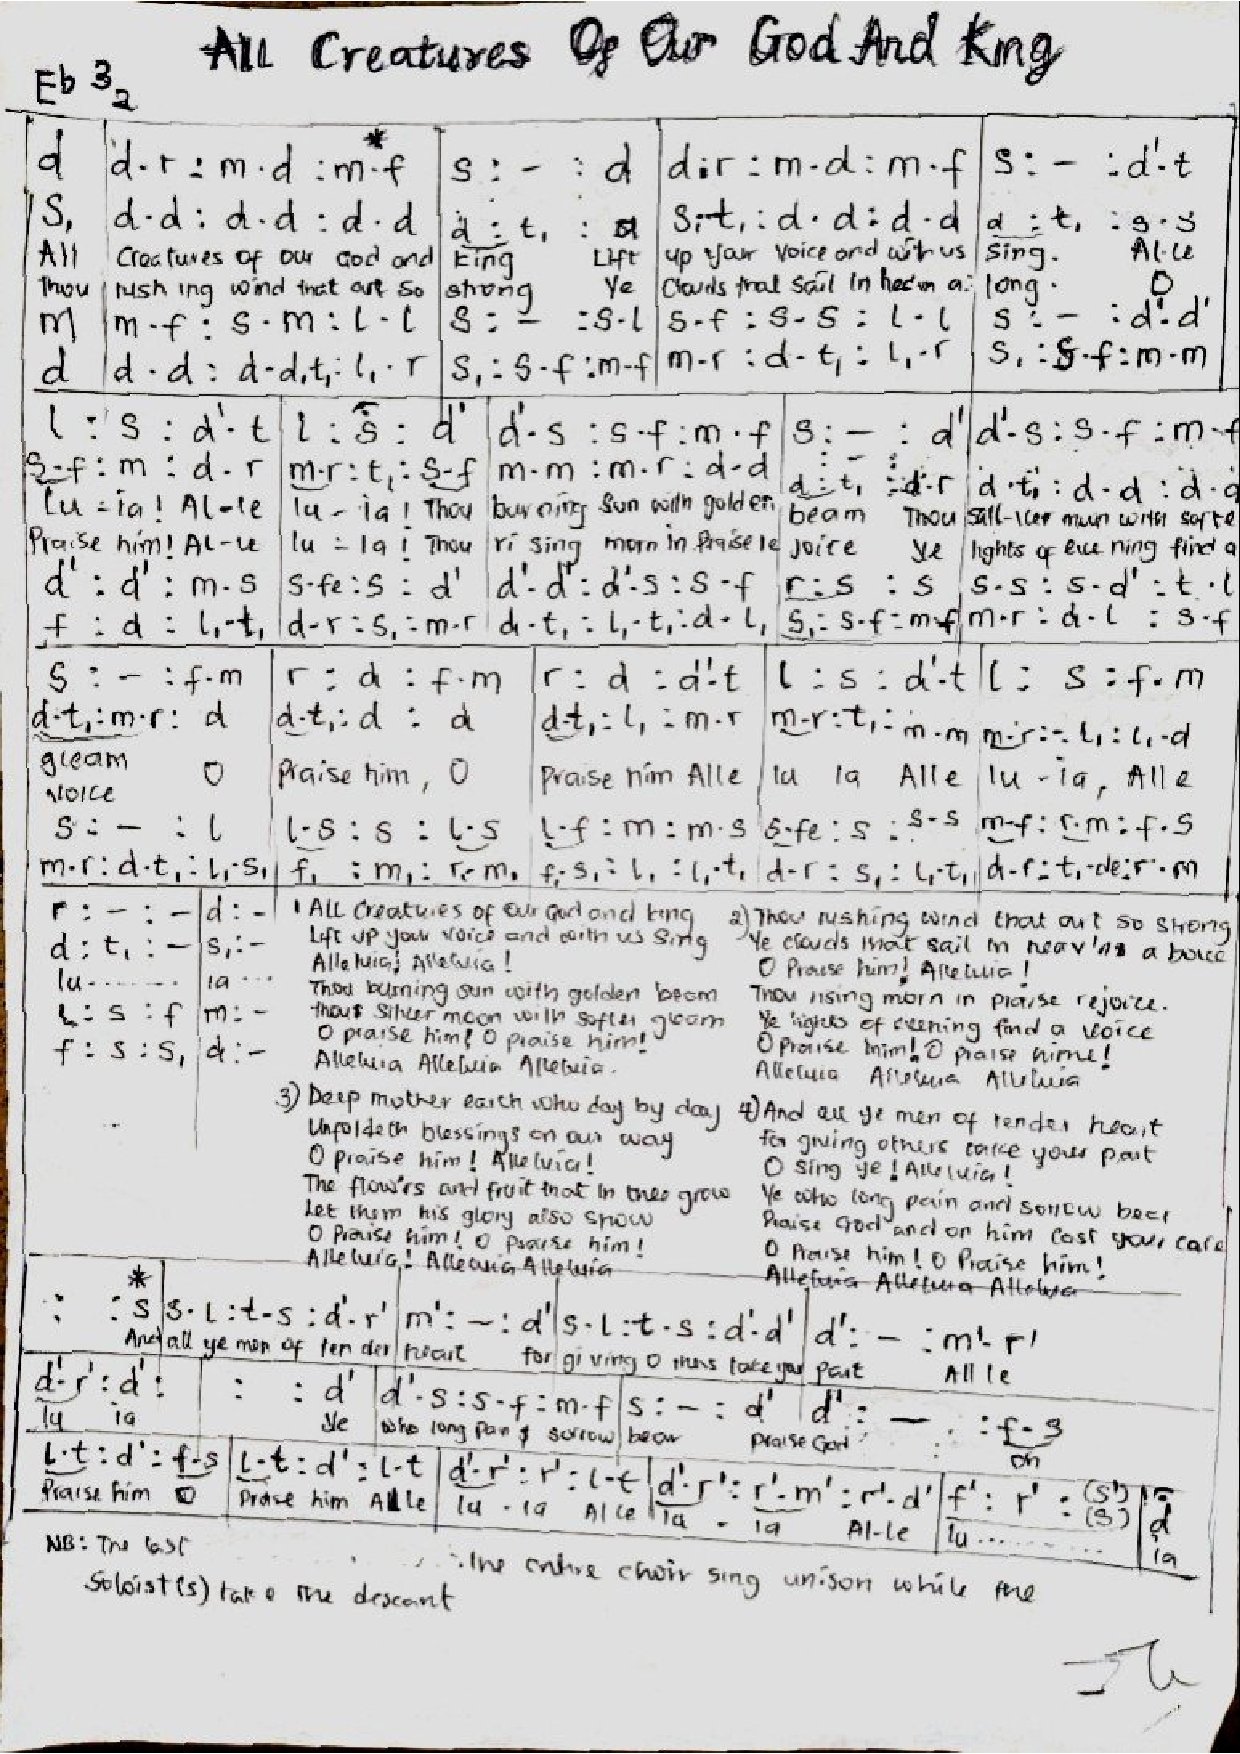 All Creatures Of Our God And King
Eb 3 2
*
d d·r : m·d : m·f s : – : d d:r : m·d : m·f s : – : d'·t
s, d·d : d·d : d·d d : t, : d s,·t, : d·d : d·d d : t, : s·s
All Creatures of our God and king Lift up your Voice and with us Sing. Al-le
Thou rush ing wind that art so strong Ye Clouds that sail in heav'n a long. O
m m·f : s·m : l·l s : – : s·l s·f : s·s : l·l s : – : d'·d'
d d·d : d·d,t, : l,·r s, : s·f : m·f m·r : d·t, : l,·r s, : s·f : m·m
l : s : d'·t l : s : d' d'·s : s·f : m·f s : – : d' d'·s : s·f : m·f
s·f : m : d·r m·r : t, : s·f m·m : m·r : d·d d : t, : d·r d·t, : d·d : d·d
lu – ia! Al-le lu – ia! Thou burning Sun with golden beam Thou Sill-ver moon with softe
Praise him! Al-le lu – ia! Thou ri sing morn in Praise le joice ye lights of eve ning find a
d' : d' : m·s s·fe : s : d' d'·d' : d'·s : s·f r : s : s s·s : s·d' : t·l
f : d : l,·t, d·r : s, : m·r d·t, : l,·t, : d·l, s, : s·f : m·f m·r : d·l : s·f
s : – : f·m r : d : f·m r : d : d'·t l : s : d'·t l : s : f·m
d·t, : m·r : d d·t, : d : d d·t, : l, : m·r m·r : t, : m·m m·r : – l, : l,·d
gleam O Praise him, O Praise him Alle lu ia Alle lu - ia, Alle
voice
s : – : l l·s : s : l·s l·f : m : m·s s·fe : s : s·s m·f : r·m : f·s
m·r : d·t, : l,·s, f, : m, : r,·m, f,·s, : l, : l,·t, d·r : s, : l,·t, d·r : t,·de : r·m
r : – : – d : –
d : t, : – s, : –
lu....... ia ...
l : s : f m : –
f : s : s, d : –
1 All Creatures of our God and king
Lift up your voice and with us Sing
Alleluia! Alleluia!
Thou burning sun with golden beam
thout Silver moon with softer gleam
O praise him! O praise him!
Alleluia Alleluia Alleluia.
2) Thou rushing wind that art so strong
Ye clouds that sail in heav'ns a
O Praise him! Alleluia!
Thou rising morn in praise rejoice.
Ye lights of evening find a voice
O praise him! O praise hime!
Alleluia Alleluia Alleluia
3) Deep mother earth who day by day
Unfoldeth blessings on our way
O praise him! Alleluia!
The flow'rs and fruit that in thee grow
Let them his glory also show
O Praise him! O Praise him!
Alleluia! Alleluia Alleluia
4) And all ye men of tender heart
for giving others take your part
O sing ye! Alleluia!
Ye who long pain and sorrow bear
Praise God and on him cast your care
O Praise him! O Praise him!
Alleluia Alleluia Alleluia
*
: : s s·l : t·s : d'·r' m' : – : d' s·l : t·s : d'·d' d' : – : m'·r'
And all ye men of ten der heart for gi ving O thers take your part All le
d'·r' : d' : : : d' d'·s : s·f : m·f s : – : d' d' : – : f·s
lu ia Ye who long Pain & sorrow bear Praise God on
l·t : d' : f·s l·t : d' : l·t d'·r' : r' : l·t d'·r' : r'·m' : r'·d' f' : r' : (s') (s) d
Praise him O Praise him Alle lu - ia Al le ia - ia Al-le lu.......... ia
NB: The last
the entire choir sing unison while the
Soloist(s) take the descant